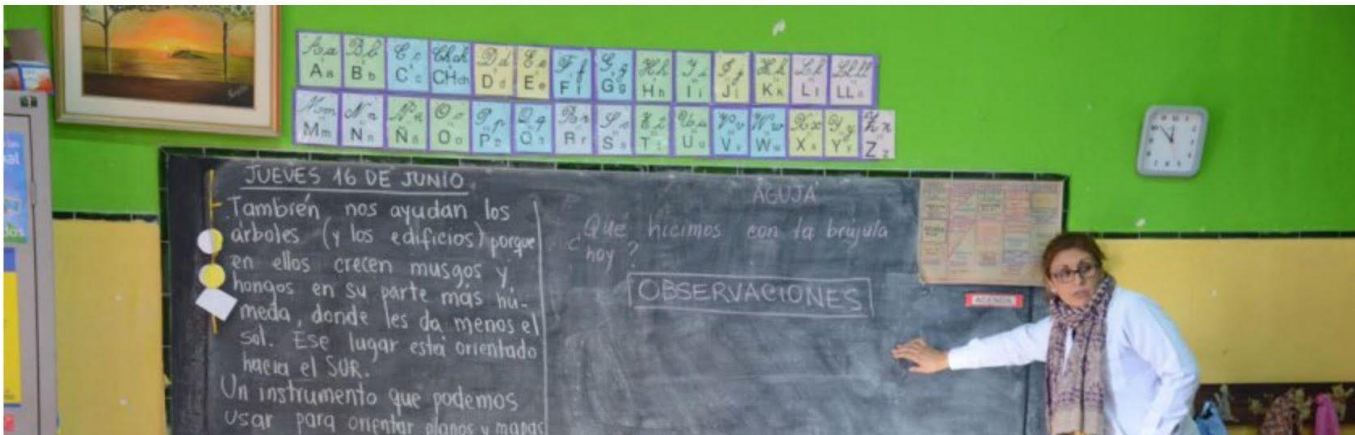 Aa Bb Cc CHch Dd Ee Ff Gg Hh Ii Jj Kk Ll LLll
Mm Nn Ññ Oo Pp Qq Rr Ss Tt Uu Vv Ww Xx Yy Zz
JUEVES 16 DE JUNIO
También nos ayudan los
árboles (y los edificios) porque
en ellos crecen musgos y
hongos en su parte más hú-
meda, donde les da menos el
sol. Ese lugar está orientado
hacia el SUR.
Un instrumento que podemos
usar para orientar planos y mapas
AGUJA
¿Qué hicimos con la brújula
hoy?
OBSERVACIONES
AGENDA